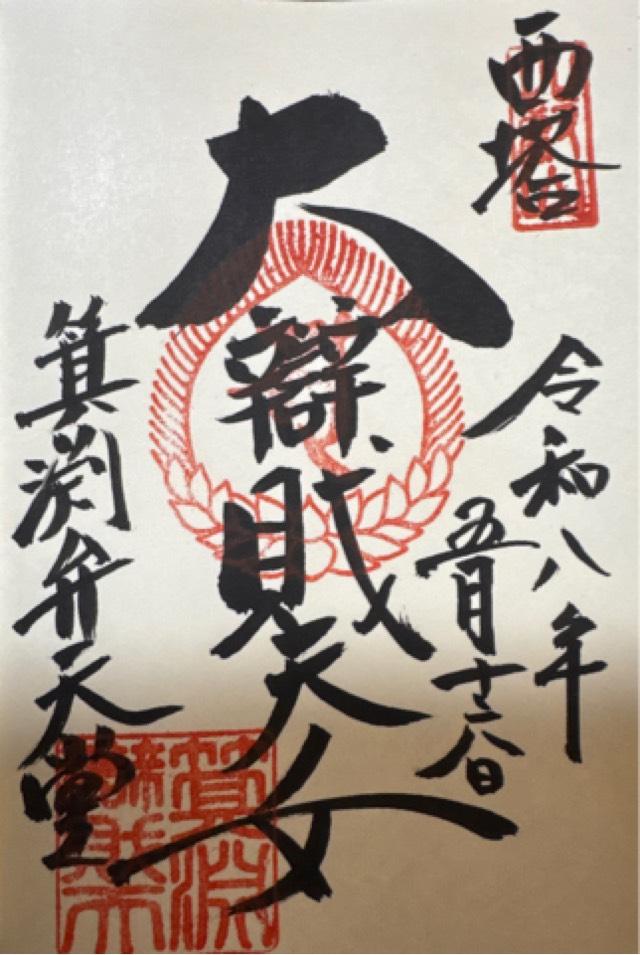 西塔
令和八年
五月十六日
大辯財天女
箕渕弁天堂